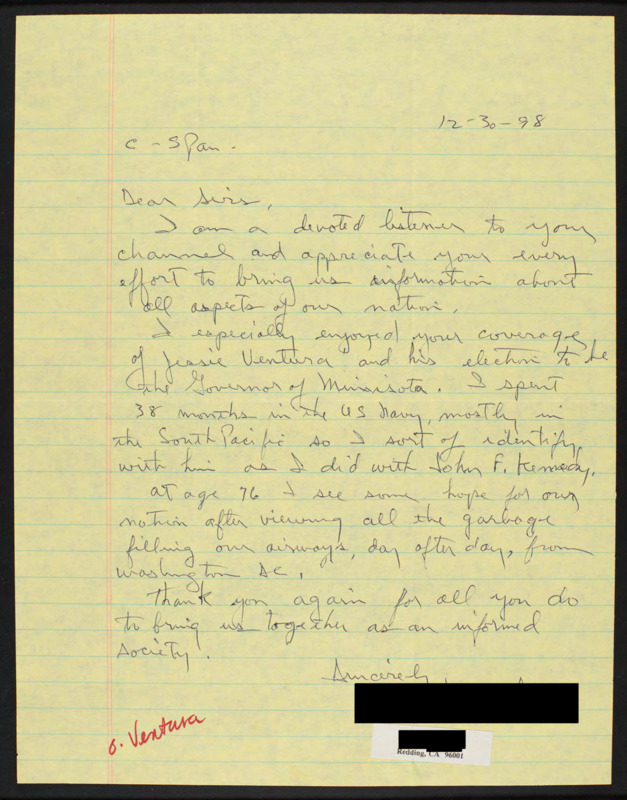 12-30-98
C-Span.
Dear Sirs,
I am a devoted listener to your
channel and appreciate your every
effort to bring us information about
all aspects of our nation.
I especially enjoyed your coverage
of Jessie Ventura and his election to be
the Governor of Minisota. I spent
38 months in the US Navy, mostly in
the South Pacific so I sort of identify
with him as I did with John F. Kennedy.
at age 76 I see some hope for our
nation after viewing all the garbage
filling our airways, day after day, from
Washington DC.
Thank you again for all you do
to bring us together as an informed
society.
Sincerely,
Redding, CA 96001
o. Ventura